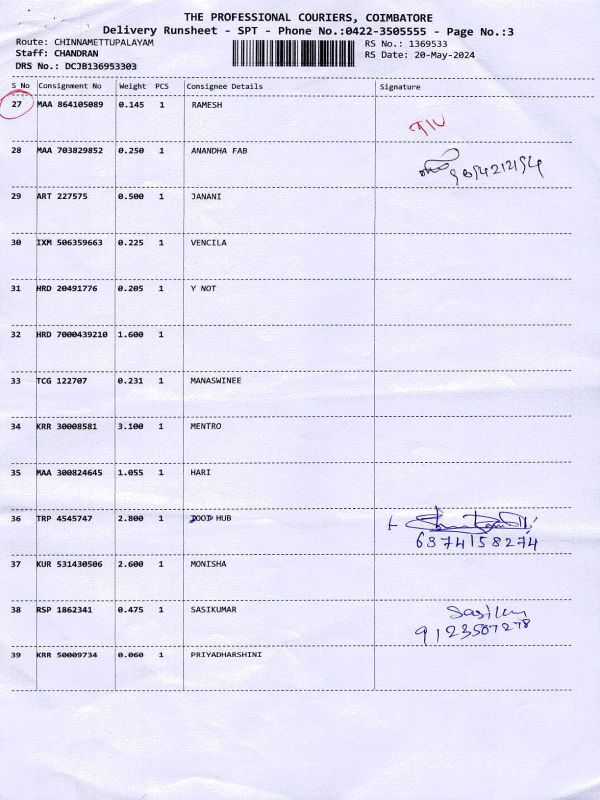 THE PROFESSIONAL COURIERS, COIMBATORE
Delivery Runsheet - SPT - Phone No.:0422-3505555 - Page No.:3
Route: CHINNAMETTUPALAYAM
RS No.: 1369533
Staff: CHANDRAN
RS Date: 20-May-2024
DRS No.: DCJB136953303
S No Consignment No Weight PCS Consignee Details Signature
27 MAA 864105089 0.145 1 RAMESH
28 MAA 703829852 0.250 1 ANANDHA FAB
29 ART 227575 0.500 1 JANANI
30 IXM 506359663 0.225 1 VENCILA
31 HRD 20491776 0.205 1 Y NOT
32 HRD 7000439210 1.600 1
33 TCG 122707 0.231 1 MANASWINEE
34 KRR 30008581 3.100 1 MENTRO
35 MAA 300824645 1.055 1 HARI
36 TRP 4545747 2.800 1 HUB
6374158274
37 KUR 531430506 2.600 1 MONISHA
38 RSP 1862341 0.475 1 SASIKUMAR
9123507278
39 KRR 50009734 0.060 1 PRIYADHARSHINI